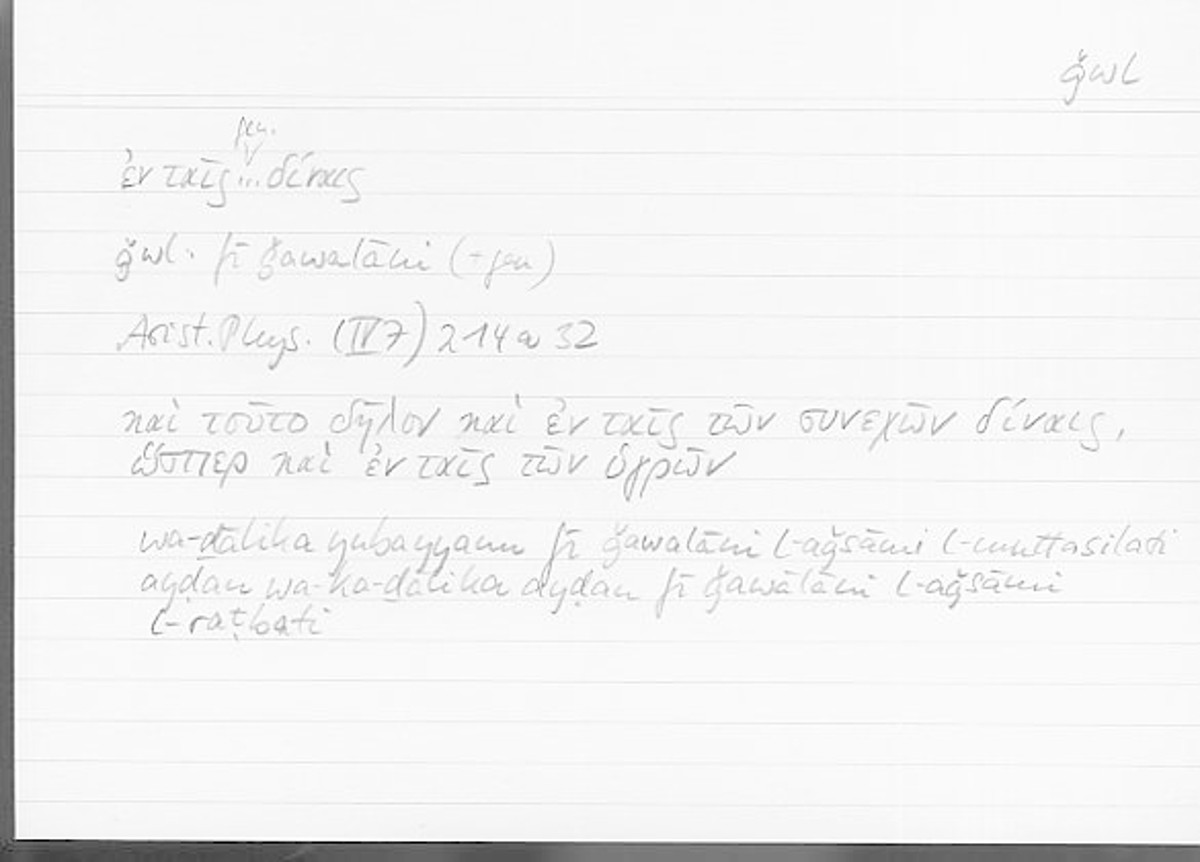 ǧwl
gen.
ἐν ταῖς ... δίναις
ǧwl. fī ǧawalāni (+gen)
Arist. Phys. (IV 7) 214 a 32
καὶ τοῦτο δῆλον καὶ ἐν ταῖς τῶν συνεχῶν δίναις,
ὥσπερ καὶ ἐν ταῖς τῶν ὑγρῶν
wa-ḏālika yubayyanu fī ǧawalāni l-aǧsāmi l-muttasilati
ayḍan wa-ka-ḏālika ayḍan fī ǧawālāni l-aǧsāmi
l-raṭbati